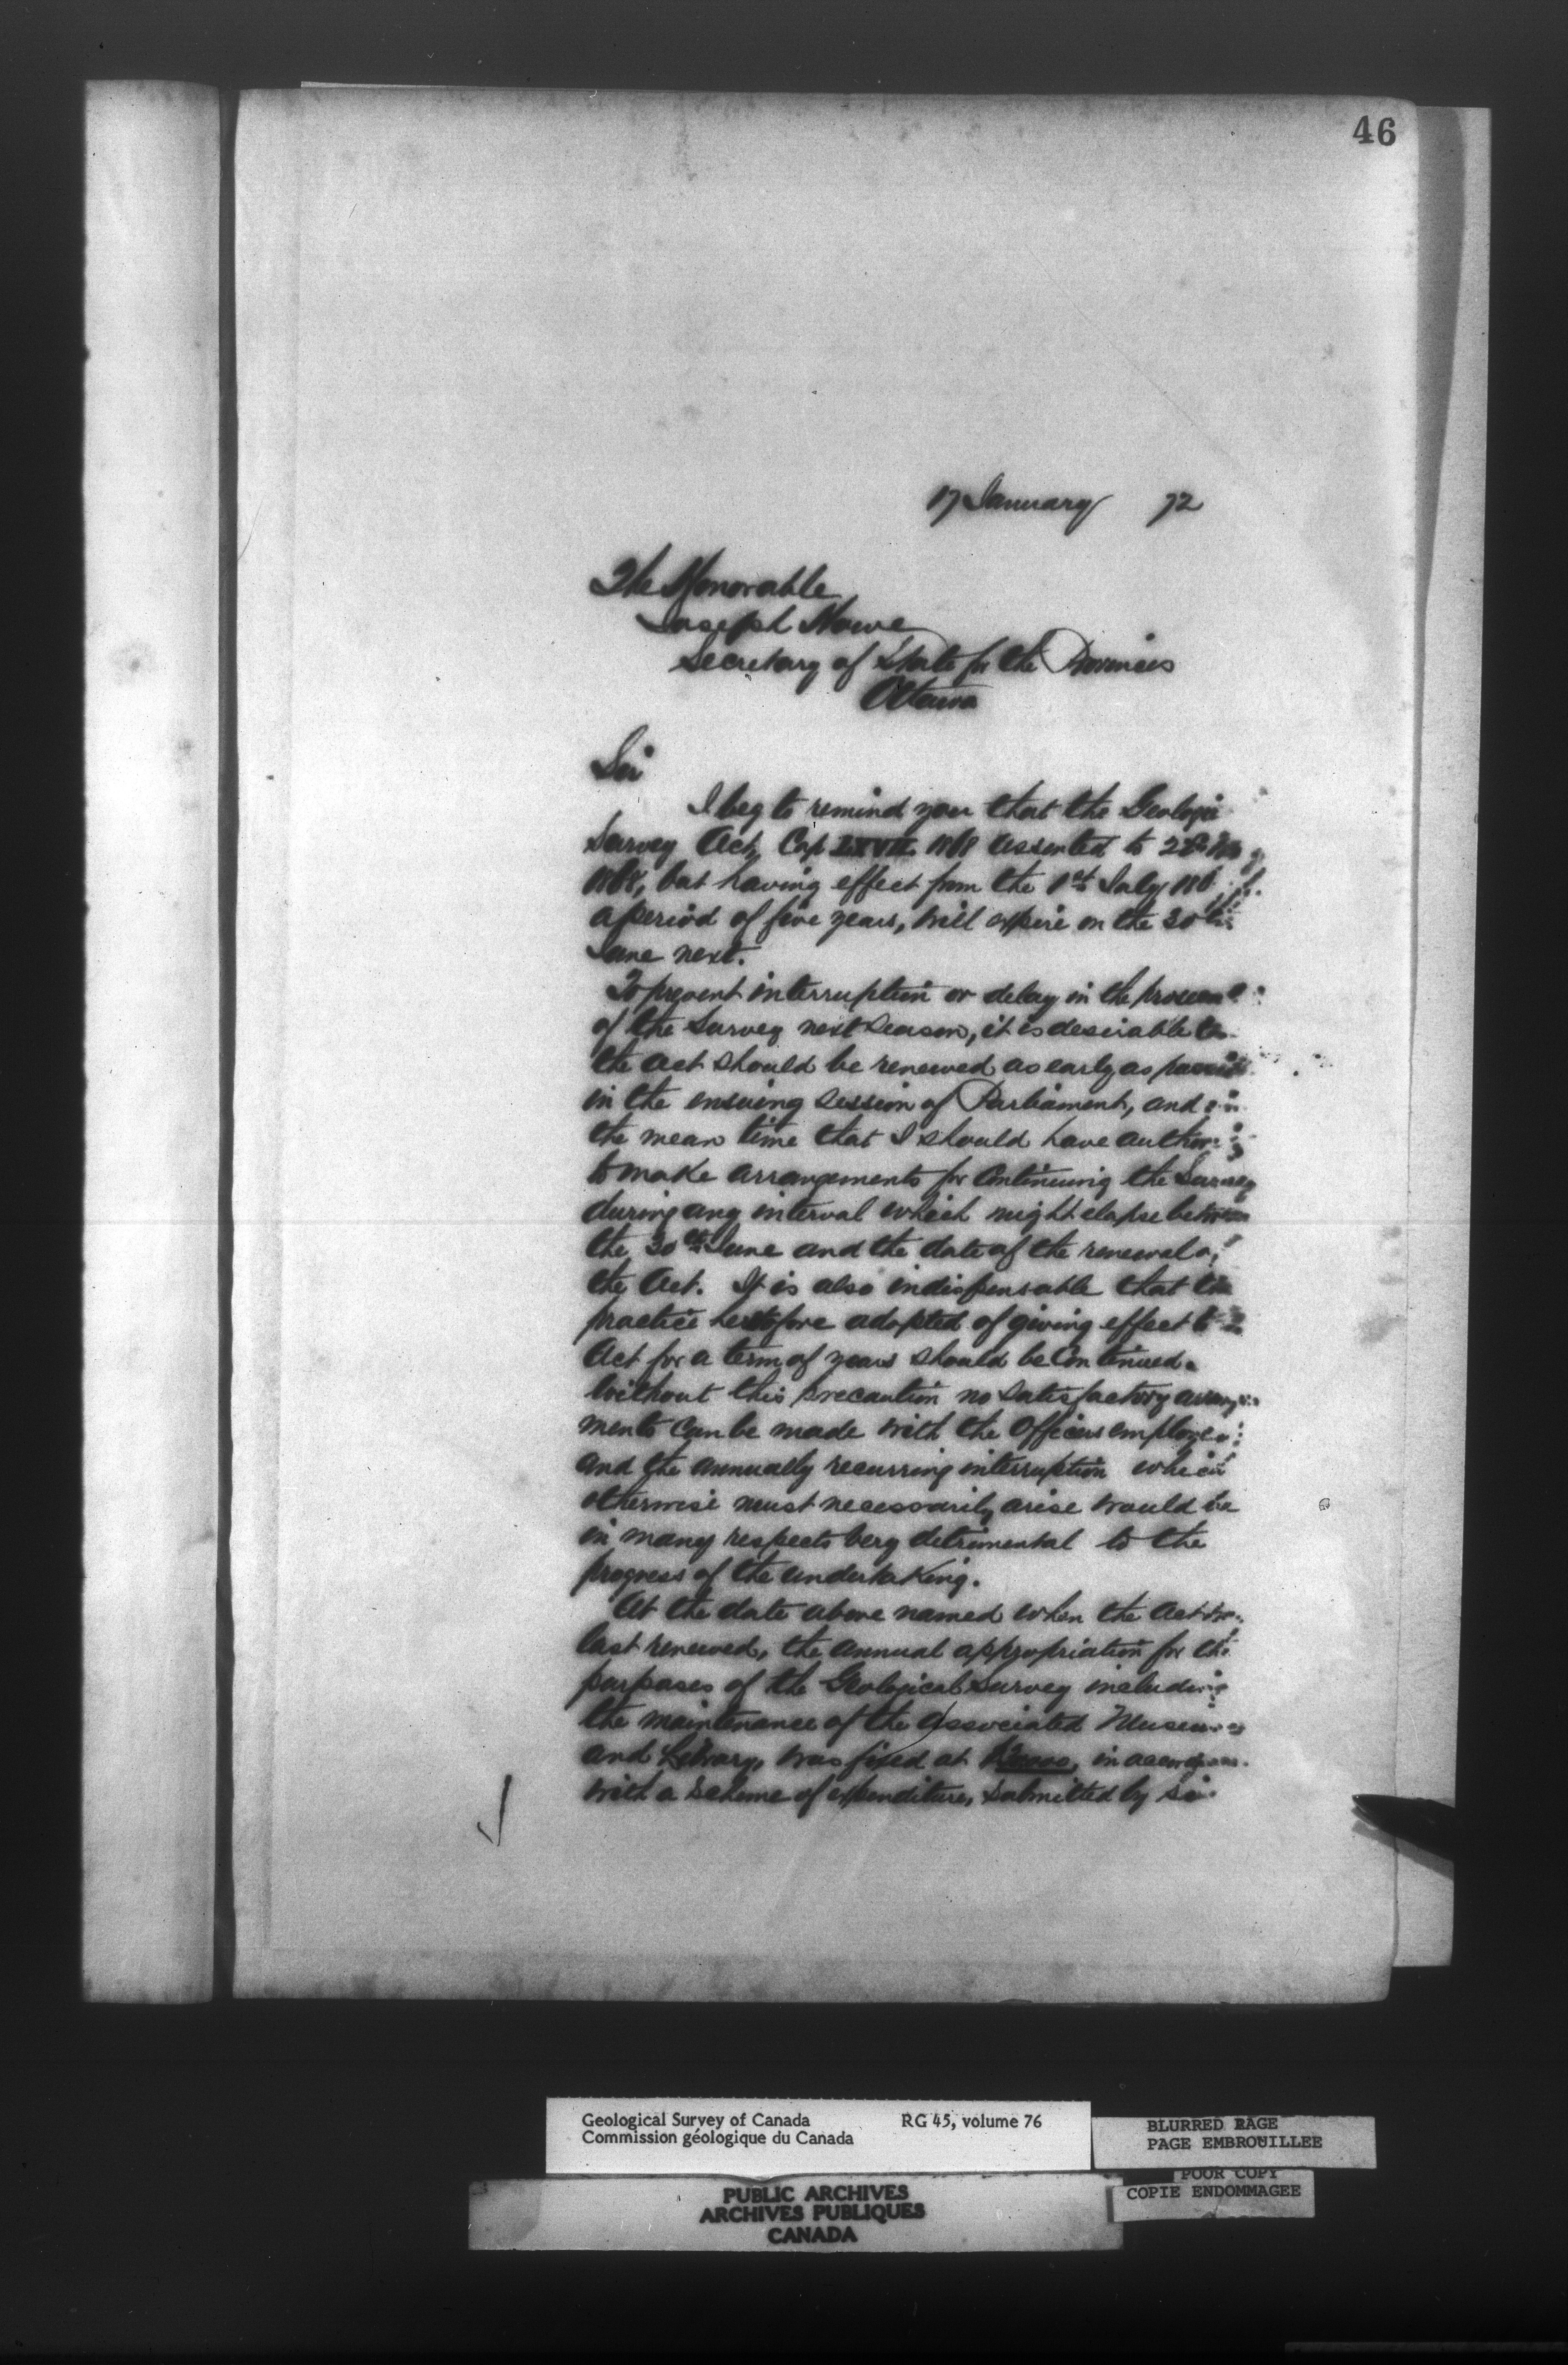 46
17 January 72
The Honorable
Joseph Howe
Secretary of State for the Provinces
Ottawa
Sir
I beg to remind you that the Geologi
Survey Act, Cap LXVII 1868 assented to 22d
1868, but having effect from the 1st July 186
a period of five years, will expire on the 30th
June next.
To prevent interruption or delay in the
of the Survey next Season, it is desirable
the Act should be renewed as early as
in the ensuing Session of Parliament, and in
the mean time that I should have author
to make arrangements for Continuing the Survey
during any interval which might elapse between
the 30th June and the date of the renewal of
the Act. It is also indispensable that the
practice heretofore adopted of giving effect to
Act for a term of years should be Continued.
Without this precaution no satisfactory arrange
ments can be made with the Officers employed
and the annually recurring interruption which
otherwise must necessarily arise would be
in many respects very detrimental to the
progress of the undertaking.
At the date above named when the Act was
last renewed, the annual appropriation for the
purposes of the Geological Survey including
the maintenance of the associated Museum
and Library, was fixed at in
with a Scheme of expenditure, submitted by
Geological Survey of Canada RG 45, volume 76
Commission géologique du Canada
BLURRED PAGE
PAGE EMBROUILLEE
POOR COPY
COPIE ENDOMMAGEE
PUBLIC ARCHIVES
ARCHIVES PUBLIQUES
CANADA